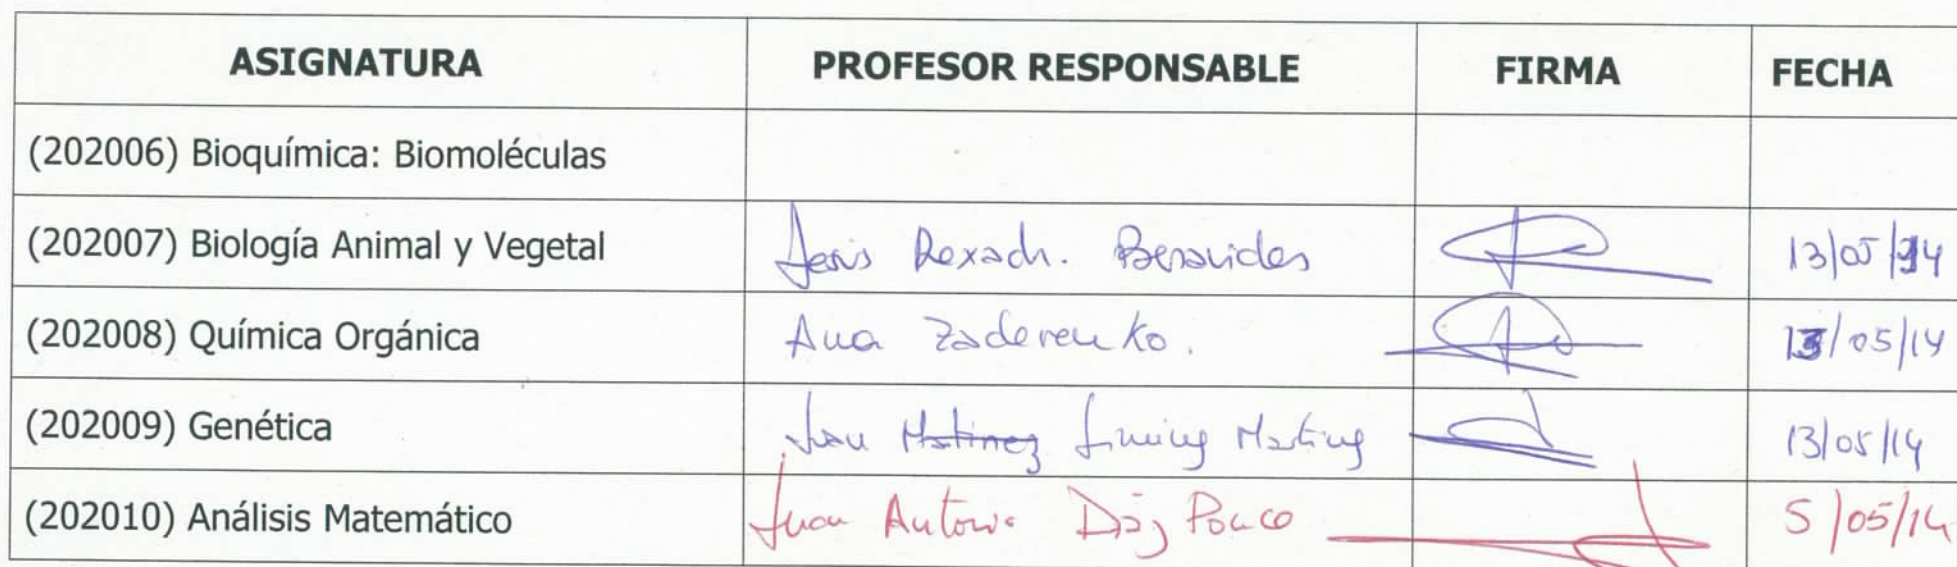 ASIGNATURA PROFESOR RESPONSABLE FIRMA FECHA
(202006) Bioquímica: Biomoléculas
(202007) Biología Animal y Vegetal Jesús Rexach. Benavides 13/05/14
(202008) Química Orgánica Ana Zaderenko. 13/05/14
(202009) Genética Juan Martinez Jiménez Martínez 13/05/14
(202010) Análisis Matemático Juan Antonio Díaz Ponce 5/05/14